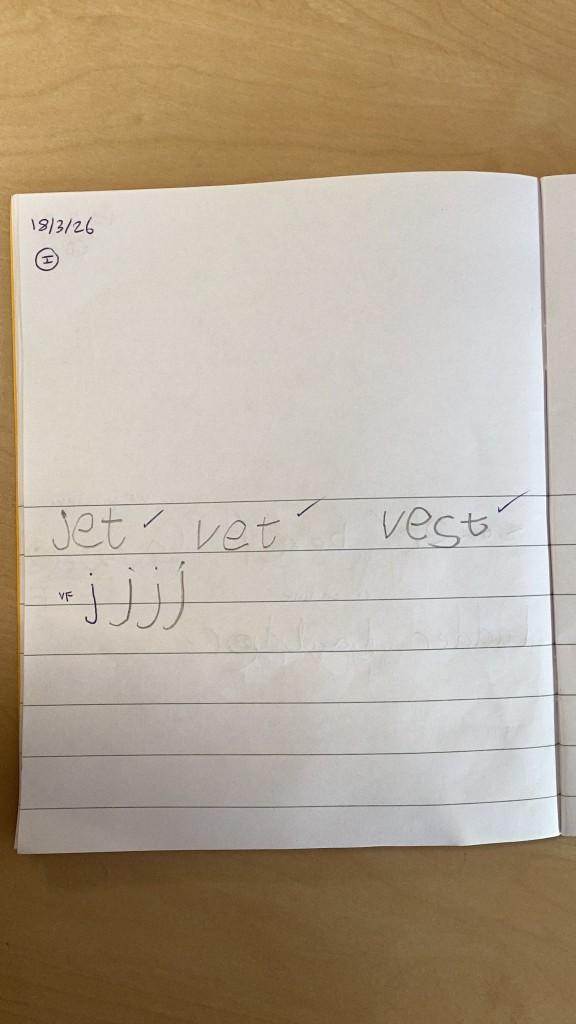 18/3/26
I
jet ✓ vet ✓ vest ✓
VF j j j j